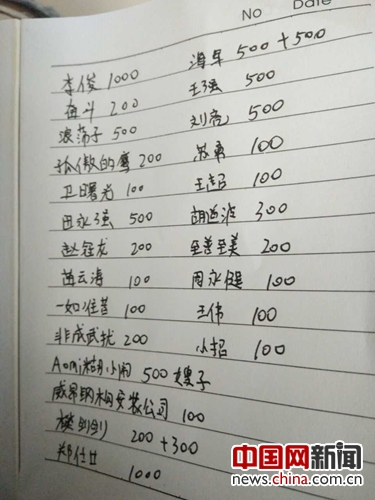 No Date
李俊 1000 海军 500+500
奋斗 200 王强 500
浪荡子 500 刘亮 500
孤傲的鹰 200 苏勇 100
卫曙光 100 王超 100
田永强 500 胡道波 300
赵冠龙 200 至善至美 200
苗云涛 100 周永健 100
一如往昔 100 王伟 100
非成武扰 200 小招 100
Aomi糊小闹 500 嫂子
威昂钢构安装公司 100
200+300
1000
中国网新闻
news.china.com.cn